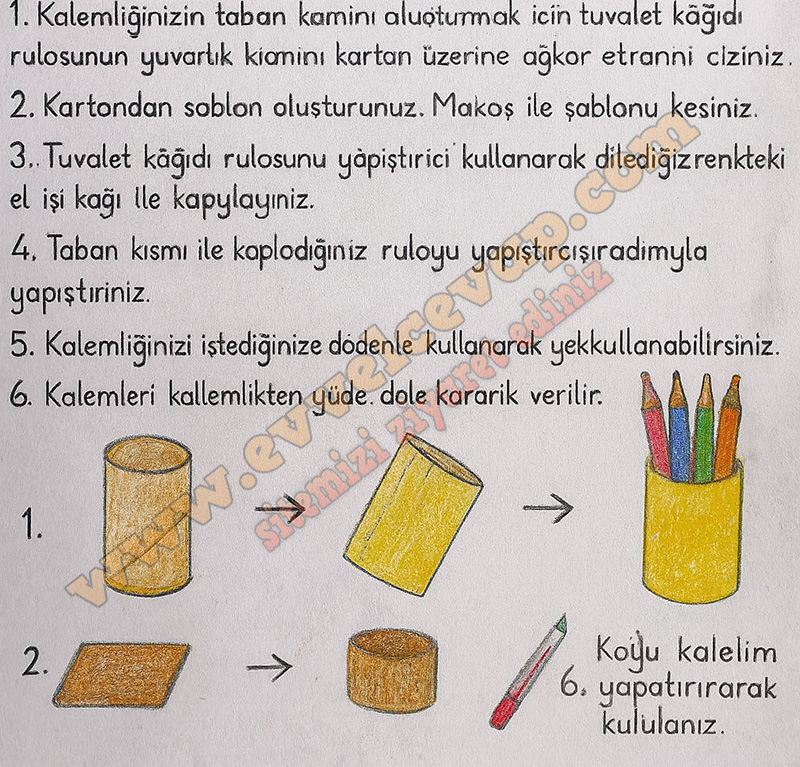 1. Kalemliğinizin taban kamini aluoturmak icin tuvalet kâğıdı
rulosunun yuvartık kiamini kartan üzerine ağkor etranni ciziniz.
2. Kartondan soblon oluşturunuz. Makoş ile şablonu kesiniz.
3.. Tuvalet kâğıdı rulosunu yàpiştırici kullanarak dilediğizrenkteki
el işi kağı lle kapylayınız.
4. Taban kısmı ile kaplodığınız ruloyu yapıştırcışıradımyla
yapıştiriniz.
5. Kalemliğinizi iştediğinize dödenle kullanarak yekkullanabilirsiniz.
6. Kalemleri kallemlikten yüde. dole kararik verilir.
www.evvelcevap.com
sitemizi ziyaret ediniz
1.
2.
Koyu kalelim
6. yapatırırarak
kululanız.